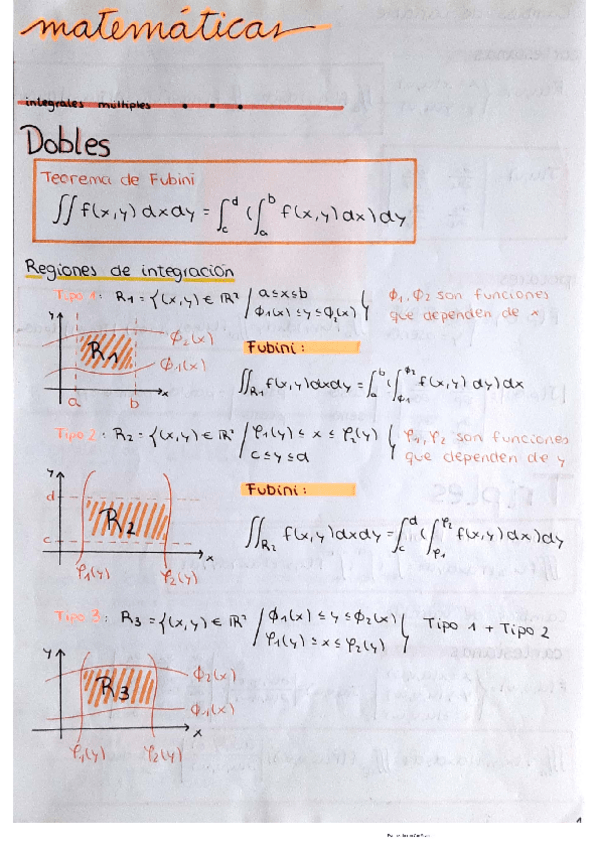 matemáticas
integrales múltiples • • •
Dobles
Teorema de Fubini
∬ f(x,y) dxdy = ∫_c^d (∫_a^b f(x,y) dx) dy
Regiones de integración
Tipo 1: R₁ = {(x,y) ∈ ℝ² / a ≤ x ≤ b
ϕ₁(x) ≤ y ≤ ϕ₂(x) }
ϕ₁, ϕ₂ son funciones
que dependen de x
y
ϕ₂(x)
R₁
ϕ₁(x)
x
a b
Fubini:
∬_R₁ f(x,y) dxdy = ∫_a^b (∫_ϕ₁^ϕ₂ f(x,y) dy) dx
Tipo 2: R₂ = {(x,y) ∈ ℝ² / φ₁(y) ≤ x ≤ φ₂(y)
c ≤ y ≤ d }
φ₁, φ₂ son funciones
que dependen de y
y
d
R₂
c
x
φ₁(y) φ₂(y)
Fubini:
∬_R₂ f(x,y) dxdy = ∫_c^d (∫_φ₁^φ₂ f(x,y) dx) dy
Tipo 3: R₃ = {(x,y) ∈ ℝ² / ϕ₁(x) ≤ y ≤ ϕ₂(x)
φ₁(y) ≤ x ≤ φ₂(y) }
Tipo 1 + Tipo 2
y
ϕ₂(x)
R₃
ϕ₁(x)
x
φ₁(y) φ₂(y)
1